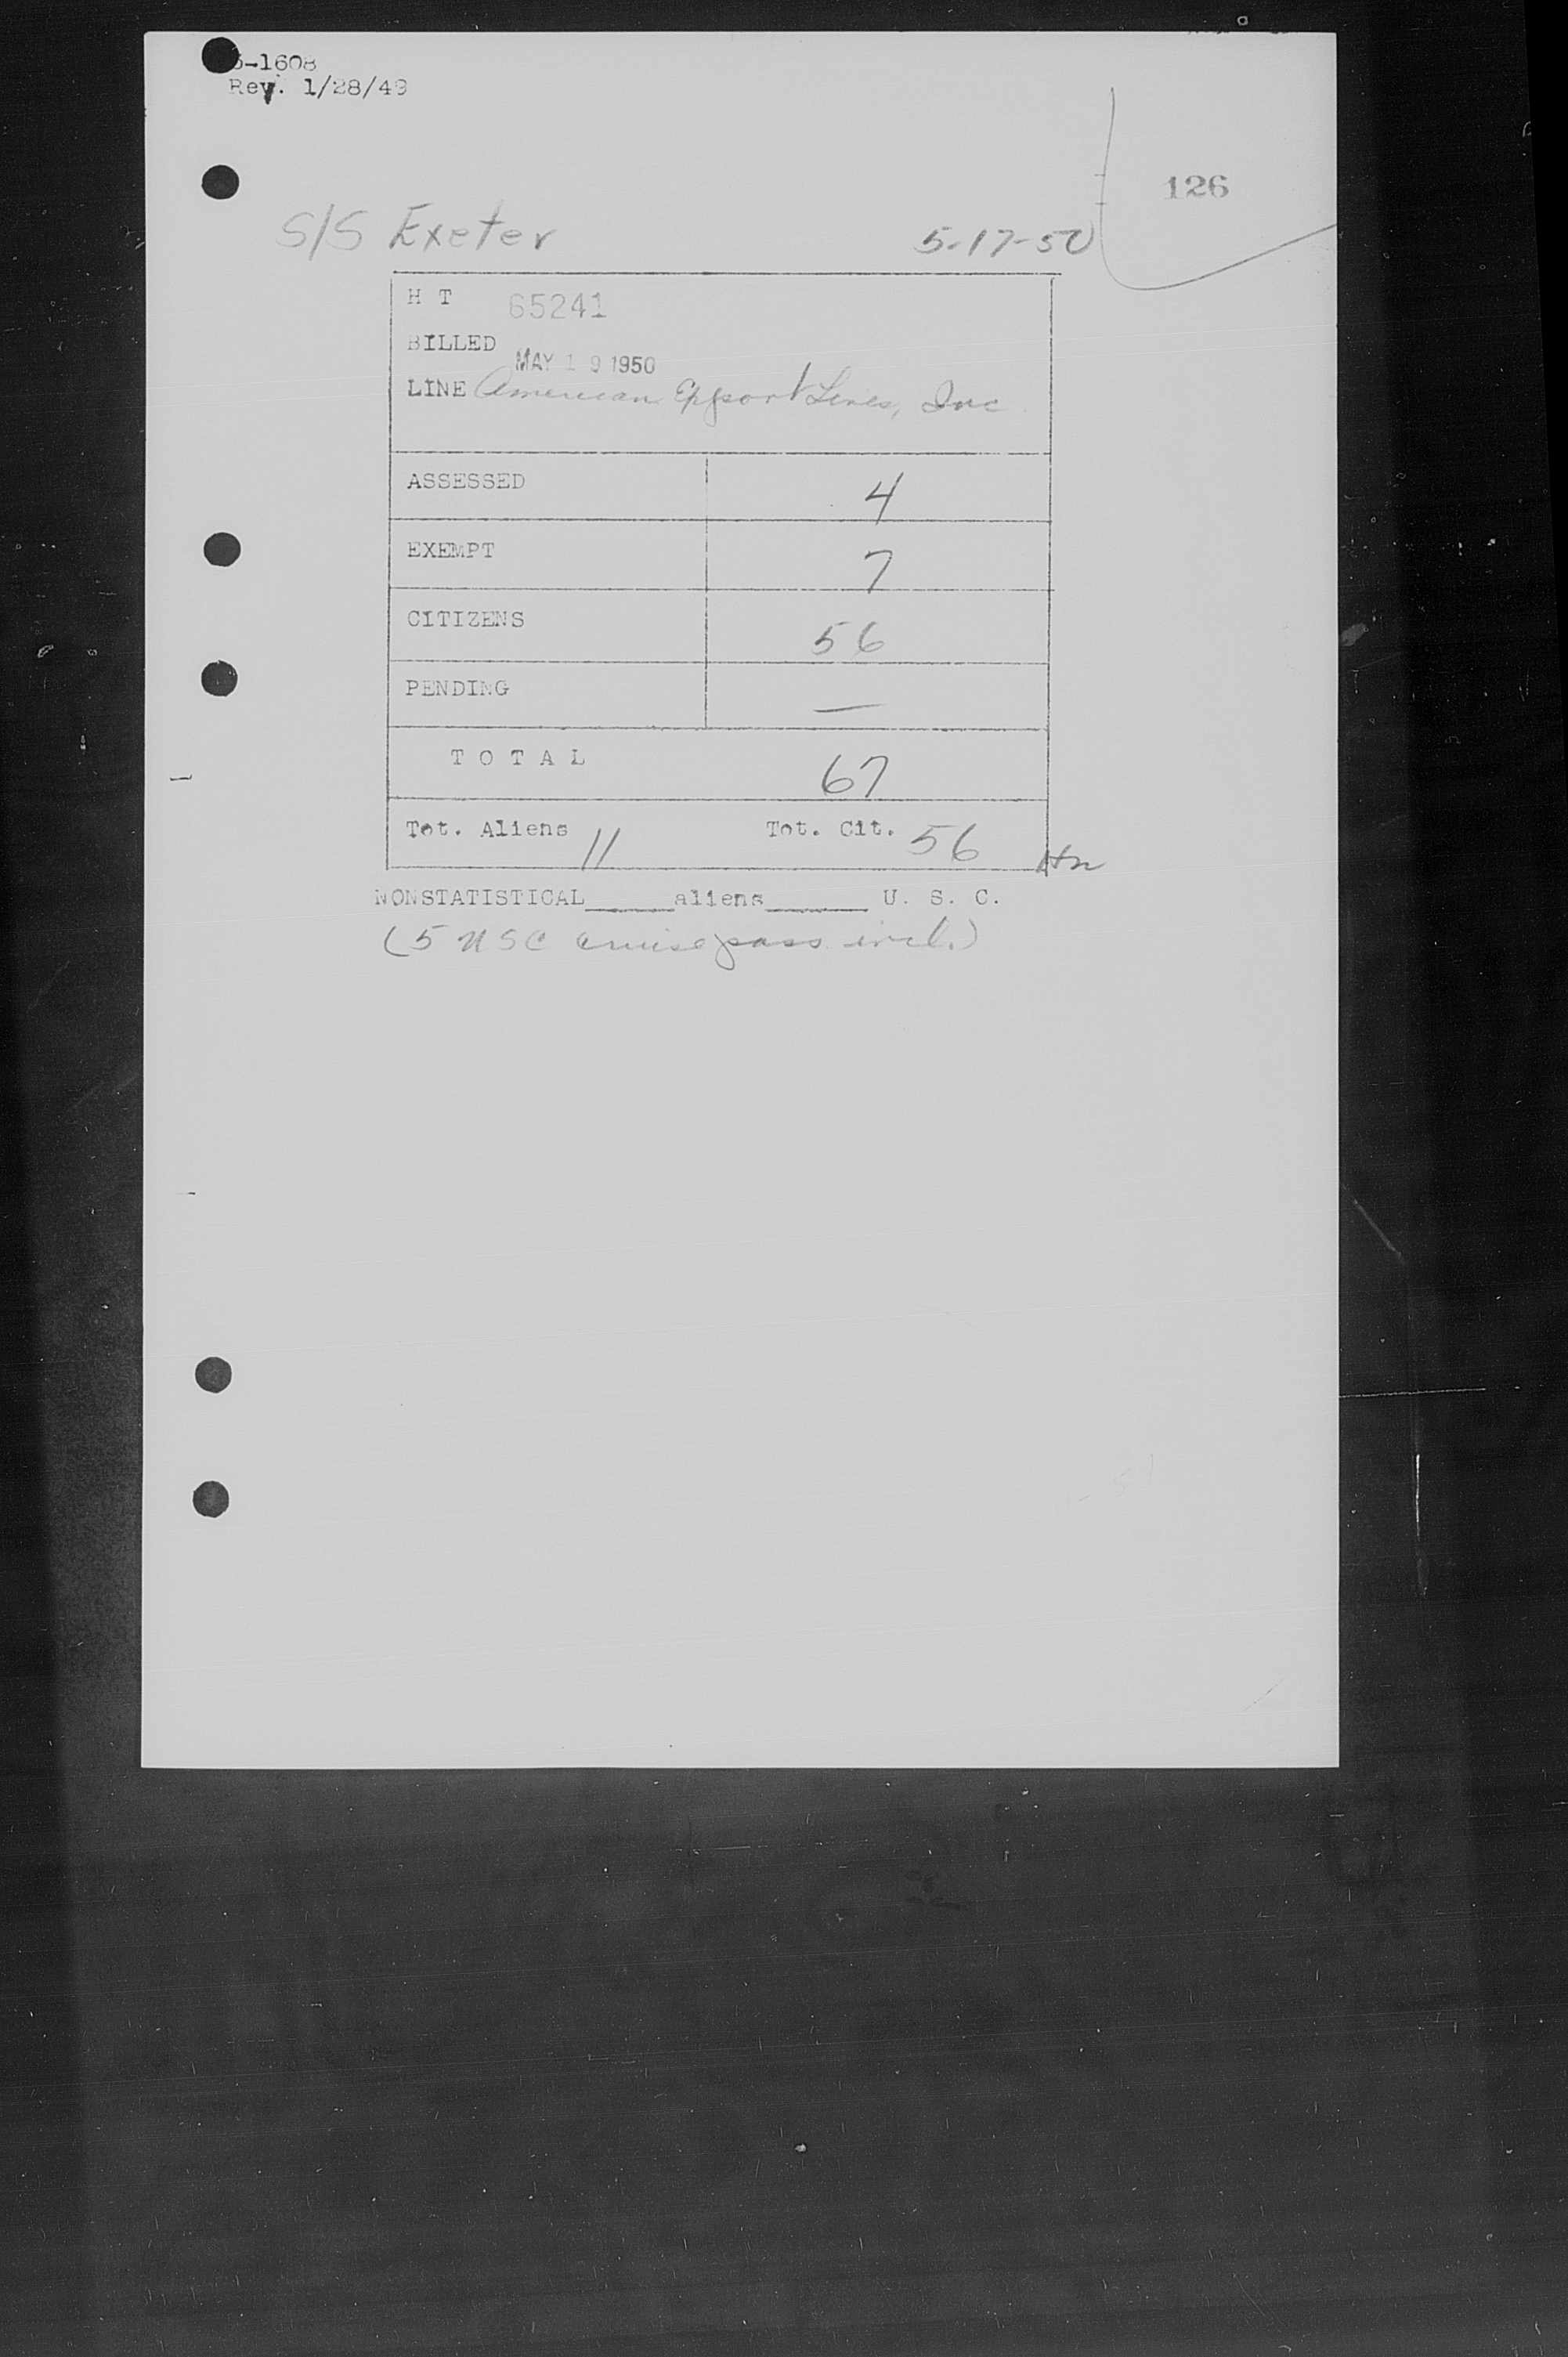 -1608
Rev. 1/28/49
126
S/S Exeter 5-17-50
H T 65241
BILLED MAY 19 1950
LINE American Export Lines, Inc
ASSESSED 4
EXEMPT 7
CITIZENS 56
PENDING —
T O T A L 67
Tot. Aliens 11 Tot. Cit. 56
NONSTATISTICAL______aliens_______ U. S. C.
(5 USC cruise pass. incl.)